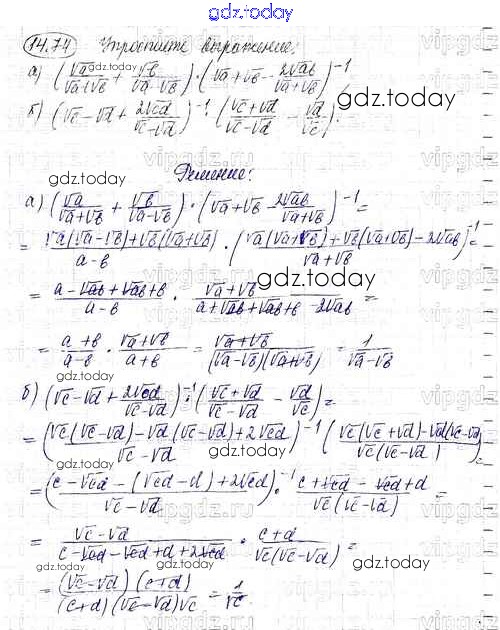 gdz.today
14.74 Упростите выражение:
а) (√a/(√a+√b) + √b/(√a-√b)) · (√a+√b - 2√ab/(√a+√b))^-1
gdz.today
б) (√c-√d + 2√cd/(√c-√d))^-1 · ((√c+√d)/(√c-√d) - √d/√c).
gdz.today
Решение:
а) (√a/(√a+√b) + √b/(√a-√b)) · (√a+√b - 2√ab/(√a+√b))^-1 =
= (√a(√a-√b)+√b(√a+√b))/(a-b) · ((√a(√a+√b)+√b(√a+√b)-2√ab)/(√a+√b))^-1 =
gdz.today
= (a-√ab+√ab+b)/(a-b) · (√a+√b)/(a+√ab+√ab+b-2√ab) =
= (a+b)/(a-b) · (√a+√b)/(a+b) = (√a+√b)/((√a-√b)(√a+√b)) = 1/(√a-√b)
gdz.today
б) (√c-√d + 2√cd/(√c-√d))^-1 · ((√c+√d)/(√c-√d) - √d/√c) =
gdz.today
= ((√c(√c-√d)-√d(√c-√d)+2√cd)/(√c-√d))^-1 (√c(√c+√d)-√d(√c-√d))/(√c(√c-√d)) =
gdz.today
= ((c-√cd-(√cd-d)+2√cd)/(√c-√d))^-1 · (c+√cd-√cd+d)/(√c(√c-√d)) =
= (√c-√d)/(c-√cd-√cd+d+2√cd) · (c+d)/(√c(√c-√d)) =
gdz.today
= (√c-√d)(c+d)/((c+d)(√c-√d)√c) = 1/√c
gdz.today